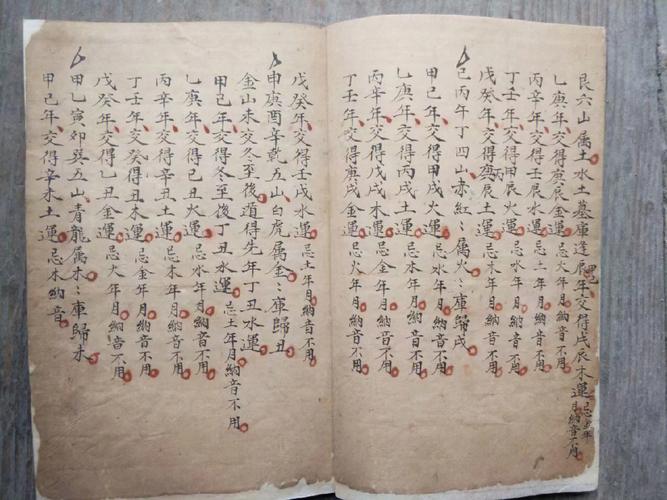 艮六山属土水土墓庫逢辰年交得戊辰木運忌金年月納音不用
乙庚年交得庚辰金運忌火年月納音不用
丙辛年交得壬辰水運忌土年月納音不用
丁壬年交得甲辰火運忌水年月納音不用
戊癸年交得丙辰土運忌木年月納音不用
巳丙午丁四山赤紅：属火：庫歸戌
甲己年交得甲戌火運忌水年月納音不用
乙庚年交得丙戌土運忌木年月納音不用
丙辛年交得戊戌木運忌金年月納音不用
丁壬年交得庚戌金運忌火年月納音不用
戊癸年交得壬戌水運忌土年月納音不用
申庚酉辛乾五山白虎属金：庫歸丑
金山未交冬至後遁得先年丁丑水運
甲己年交得冬至後丁丑水運忌土年月納音不用
乙庚年交得己丑火運忌水年月納音不用
丙辛年交得辛丑土運忌木年月納音不用
丁壬年交癸得丑木運忌金年月納音不用
戊癸年交得乙丑金運忌火年月納音不用
甲乙寅卯巽五山青龍属木：庫歸未
甲己年交得辛未土運忌木納音